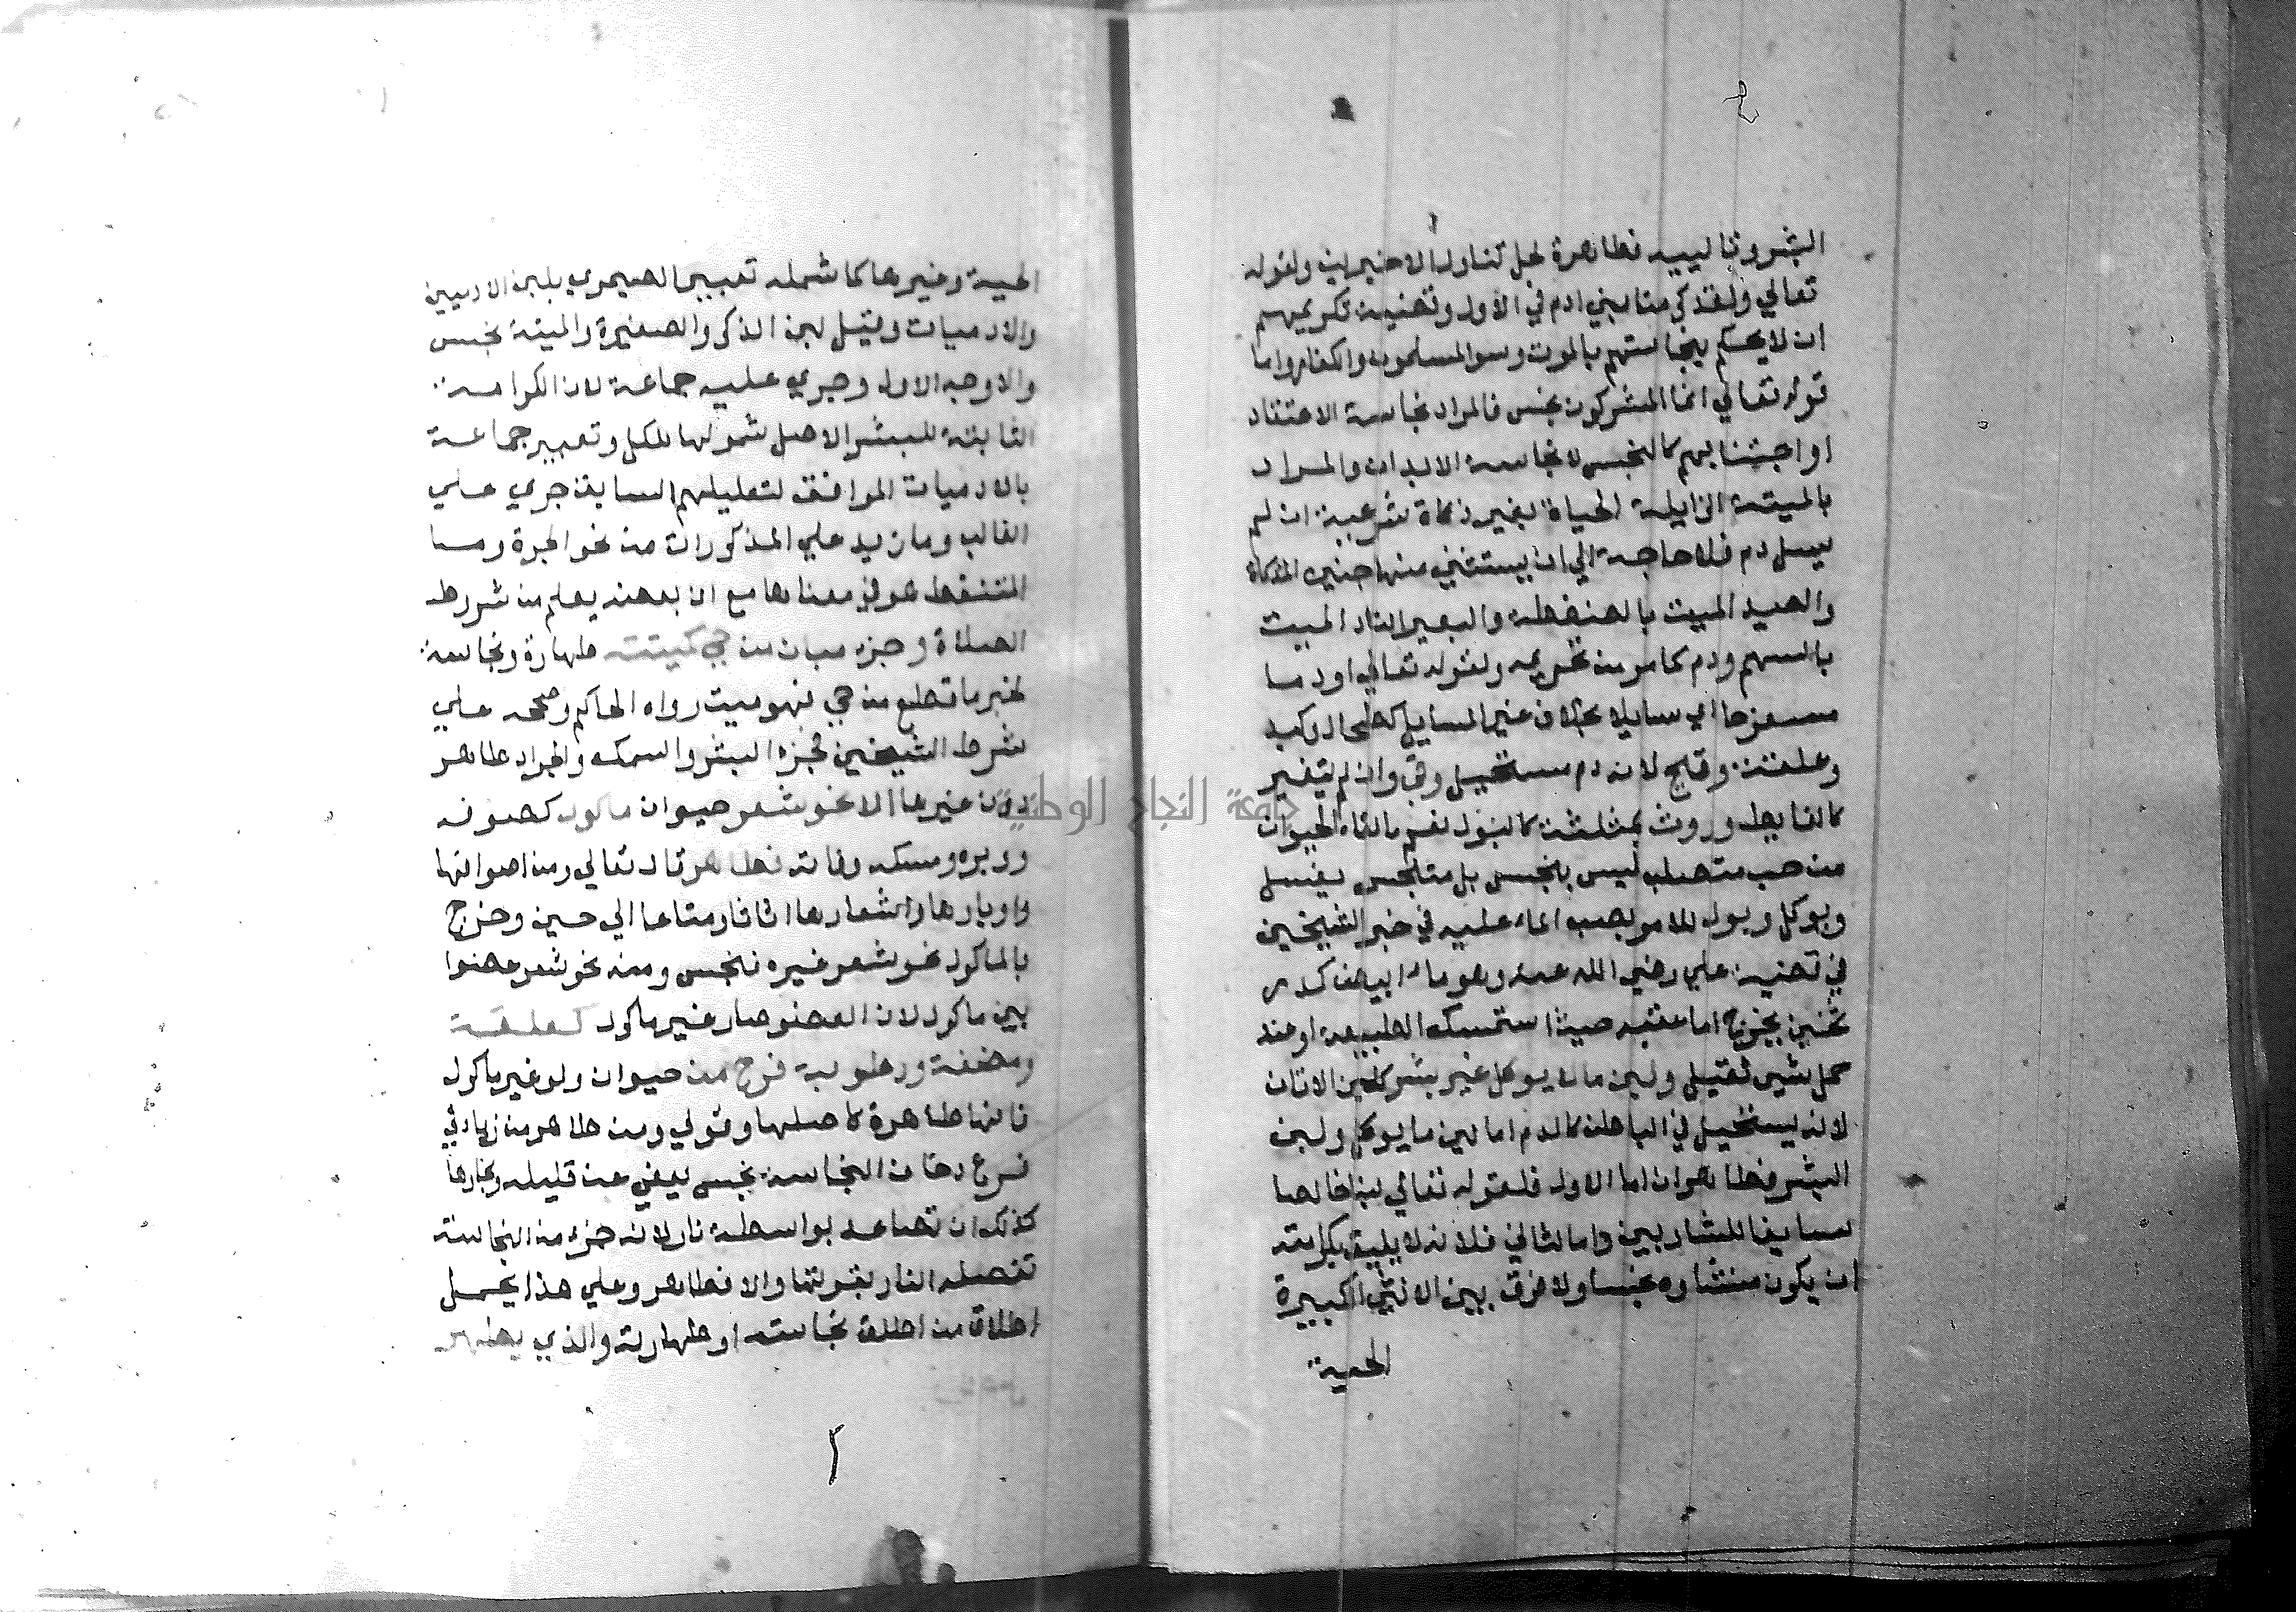 البشر وتالييه فطاهرة لحل تناول الاخيرين ولقوله
تعالي ولقد كرمنا بني ادم في الاول وقضية تكريمهم
ان لا يحكم بنجاستهم بالموت وسوا المسلمون والكفار واما
قوله تعالي انما المشركون نجس فالمراد نجاسة الاعتقاد
او اجتنابهم كالنجس لا نجاسة الابدان والمراد
بالميتة الزايلة الحياة بغير ذكاة شرعية ان لم
يسل دم فلا حاجة الي ان يستثني منها جنين المذكاة
والصيد الميت بالضغطة والبعير الناد الميت
بالسهم ودم كما مر من تحريمه ولقوله تعالي او دما
مسفوحا اي سايلا بخلاف غير السايل كطحال وكبد
وعلقة وقيح لانه دم مستحيل وقي وان لم يتغير
كالغايط وروث بمثلثة كالبول نعم ما القاه الحيوان
من حب متصلب ليس بنجس بل متنجس يغسل
ويوكل وبول للامر بصب الماء عليه في خبر الشيخين
في قضية علي رضي الله عنه وهو ماء ابيض كدر
ثخين يخرج اما عقبه حيث استمسك الطبيعة او عند
حمل شي ثقيل ولبن ما لا يوكل غير بشر كلبن الاتان
لانه يستحيل في الباطن كالدم اما لبن ما يوكل ولبن
البشر فطاهران اما الاول فلقوله تعالي لبنا خالصا
سايغا للشاربين واما الثاني فلانه لا يليق بكرامته
ان يكون منشاوه نجسا ولا فرق بين الانثي الكبيرة
الحية
الحية وغيرها كما شمله تعبير الصيمري بلبن الادميين
والادميات وقيل لبن الذكر والصغيرة والميتة نجس
والاوجه الاول وجري عليه جماعة لان الكرامة
الثابتة للبشر الاصل شمولها للكل وتعبير جماعة
بالادميات الموافق لتعليلهم السابق جري علي
الغالب وما زيد علي المذكورات من نحو الجرة وما
المتنفط هو في معناها مع ان بعضه يعلم من شروط
الصلاة وجزء مبان من حي كميتته طهارة ونجاسة
لخبر ما قطع من حي فهو ميت رواه الحاكم وصححه علي
شرط الشيخين فجزء البشر والسمك والجراد طاهر
دون غيرها الا نحو شعر حيوان ماكول كصوفه
ووبره ومسك وفارته فطاهر قال تعالي ومن اصوافها
واوبارها واشعارها اثاثا ومتاعا الي حين وخرج
بالماكول نحو شعر غيره فنجس ومنه نحو شعر عضوا
بين ماكول لان العضو صار غير ماكول كعلقة
ومضغة ورطوبة فرج من حيوان ولو غير ماكول
فانها طاهرة كاصلها وقولي ومن طاهر من زيادتي
فرع دخان النجاسة نجس يعفي عن قليله وبخارها
كذلك ان تصاعد بواسطة نار لانه جزء من النجاسة
تفصله النار بقوتها والا فطاهر وعلي هذا يحمل
اطلاق من اطلق نجاسته او طهارته والذي يظهر
جامعة النجاح الوطنية